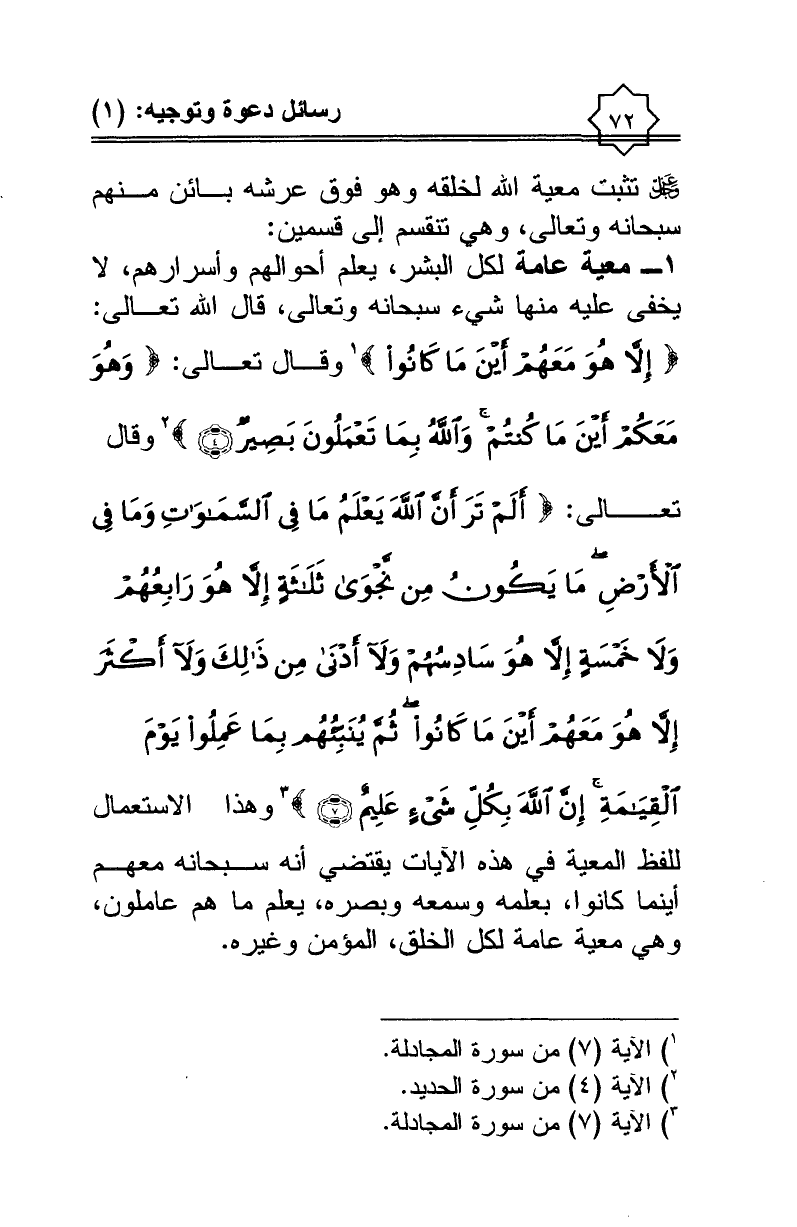 ٧٢
رسائل دعوة وتوجيه: (١)
ﷺ تثبت معية الله لخلقه وهو فوق عرشه بـائن منـهم
سبحانه وتعالى، وهي تنقسم إلى قسمين:
١ــ معية عامة لكل البشر، يعلم أحوالهم وأسرارهم، لا
يخفى عليه منها شيء سبحانه وتعالى، قال الله تعـالى:
﴿ إِلَّا هُوَ مَعَهُمْ أَيْنَ مَا كَانُوا۟ ﴾١ وقـال تعـالى: ﴿ وَهُوَ
مَعَكُمْ أَيْنَ مَا كُنتُمْ ۚ وَٱللَّهُ بِمَا تَعْمَلُونَ بَصِيرٌ ۝٤ ﴾٢ وقال
تعـــالى: ﴿ أَلَمْ تَرَ أَنَّ ٱللَّهَ يَعْلَمُ مَا فِى ٱلسَّمَـٰوَٰتِ وَمَا فِى
ٱلْأَرْضِ ۖ مَا يَكُونُ مِن نَّجْوَىٰ ثَلَـٰثَةٍ إِلَّا هُوَ رَابِعُهُمْ
وَلَا خَمْسَةٍ إِلَّا هُوَ سَادِسُهُمْ وَلَآ أَدْنَىٰ مِن ذَٰلِكَ وَلَآ أَكْثَرَ
إِلَّا هُوَ مَعَهُمْ أَيْنَ مَا كَانُوا۟ ۖ ثُمَّ يُنَبِّئُهُم بِمَا عَمِلُوا۟ يَوْمَ
ٱلْقِيَـٰمَةِ ۚ إِنَّ ٱللَّهَ بِكُلِّ شَىْءٍ عَلِيمٌ ۝٧ ﴾٣ وهذا الاستعمال
للفظ المعية في هذه الآيات يقتضي أنه سـبحانه معهـم
أينما كانوا، بعلمه وسمعه وبصره، يعلم ما هم عاملون،
وهي معية عامة لكل الخلق، المؤمن وغيره.
١) الآية (٧) من سورة المجادلة.
٢) الآية (٤) من سورة الحديد.
٣) الآية (٧) من سورة المجادلة.